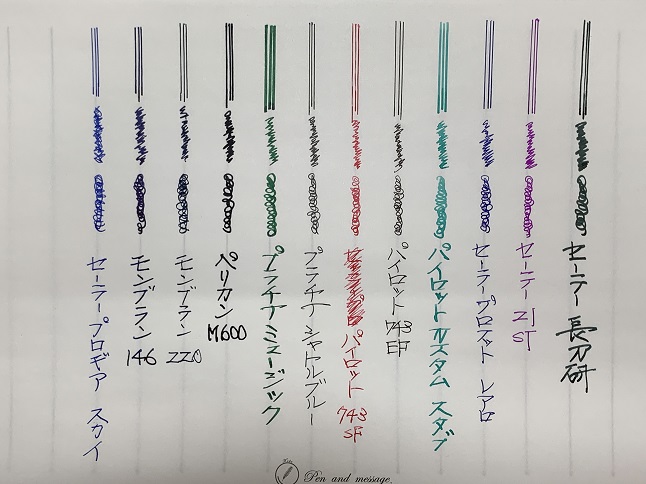 セーラー 長刀研
セーラー 21 ST
セーラープロフィット レアロ
パイロット カスタム スタブ
パイロット 743 EF
パイロット 743 SF
プラチナ シャトルブルー
プラチナ ミュージック
ペリカン M600
モンブラン 220
モンブラン 146
セーラープロギア スカイ
Pen and message.